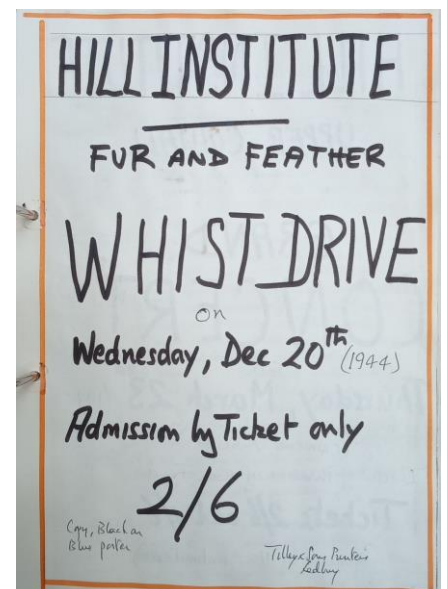 HILL INSTITUTE
FUR AND FEATHER
WHIST DRIVE
on
Wednesday, Dec 20th (1944)
Admission by Ticket only
2/6
Copy, Black on
Blue poster
Tilley & Son Printers
Ledbury